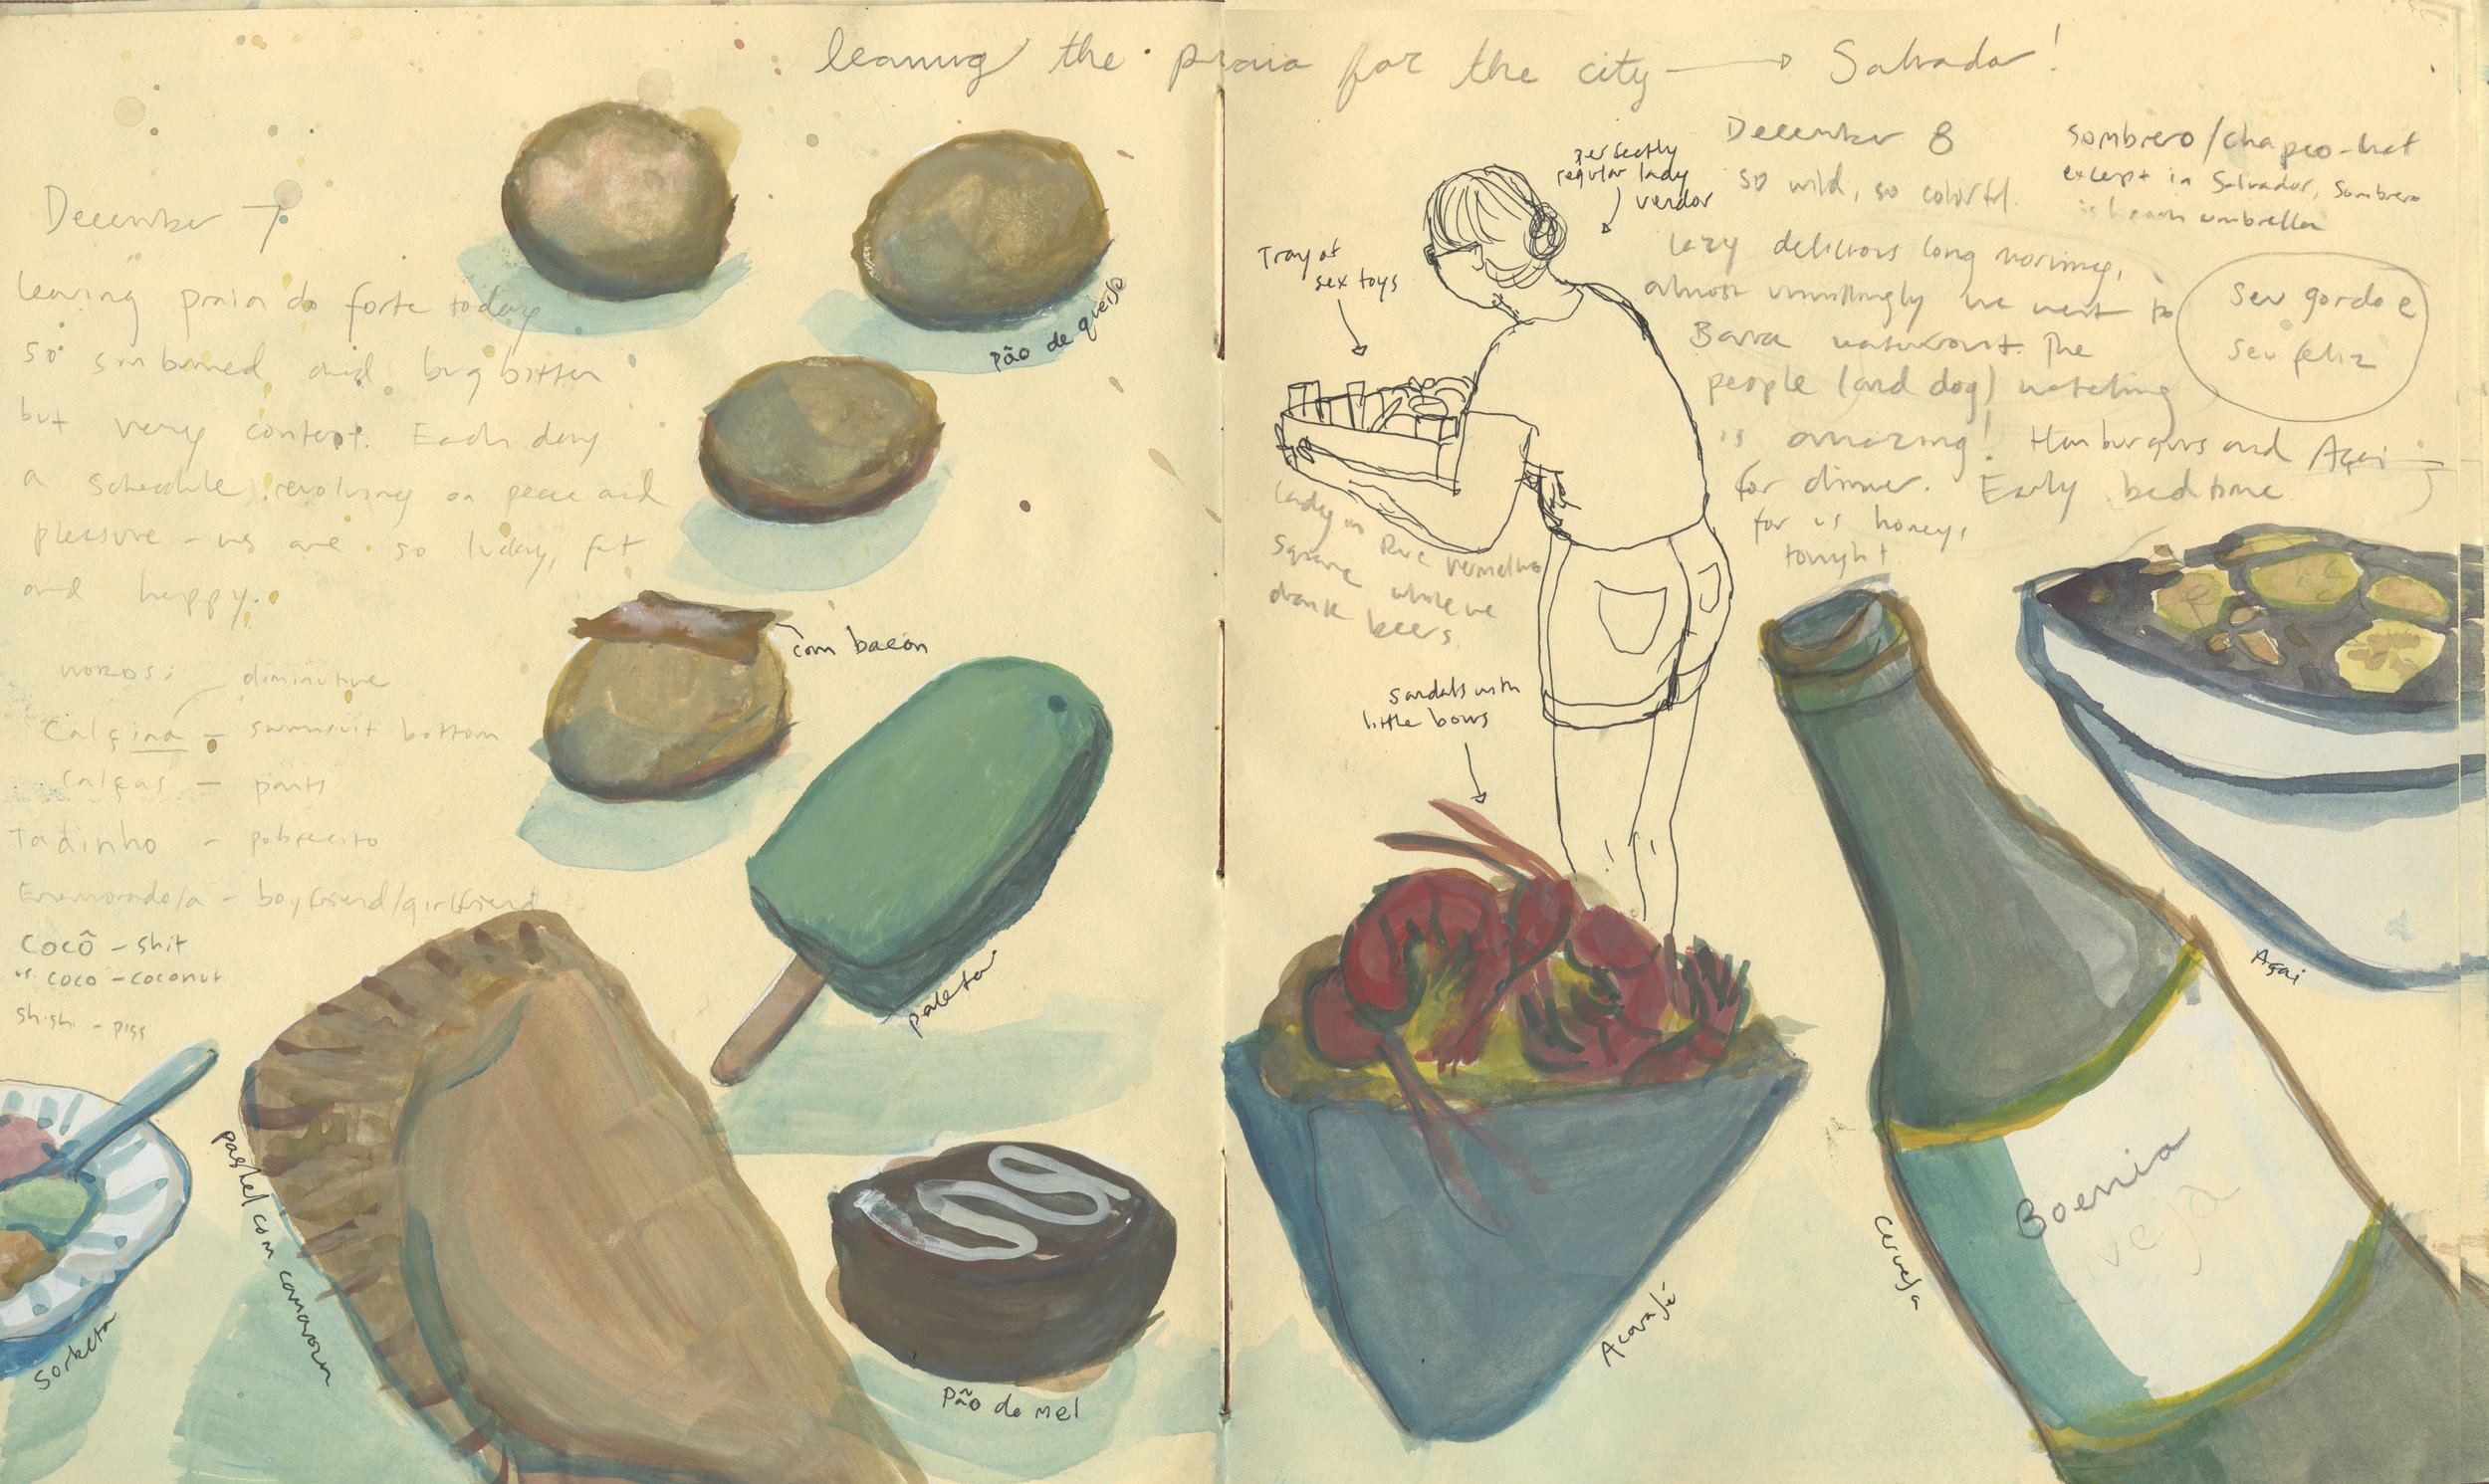 leaving the praia for the city → Salvador!
December 7
leaving praia do forte today
so sunburned and bug bitten
but very content. Each day
a schedule revolving on peace and
pleasure - we are so lucky, fat
and happy.
words:
diminutive
Calçina - swimsuit bottom
Calças - pants
Tadinho - pobrecito
Enamorado/a - boyfriend/girlfriend
Cocô - shit
vs. coco - coconut
shishi - piss
Pão de queijo
com bacon
paleta
pastel com camaron
Sorbeta
Pão de mel
perfectly
regular lady
vendor
Tray of
sex toys
Lady in Rio Vermelho
Square while we
drank beers
Sandals with
little bows
December 8
so wild, so colorful.
Lazy delicious long morning,
almost unwillingly we went to
Barra waterfront. The
people (and dog) watching
is amazing! Hamburgers and Açai
for dinner. Early bedtime
for us honeys,
tonight
Sombrero/chapeo-hat
except in Salvador, Sombrero
is beach umbrella
Ser gordo e
ser feliz
Açai
Boemia
veja
Cervesa
Acarajé